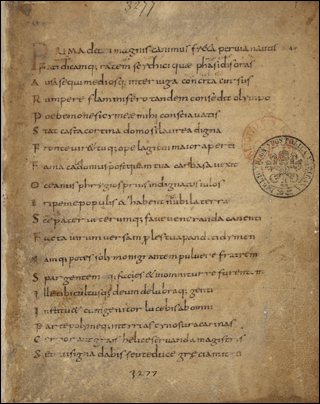 3277
PRIMA deum magnis canimus freta pervia nautis
Fatidicamq; ratem quae phasidis oras
Ausa sequi mediosq; inter iuga concita cursus
Rumpere flammifero tandem consedit olympo
Phoebe mone si mihi conscia vatis
Stat casta cortina domo si laurea digna
Fronte viret tuq; o pelagi cui maior aperti
Fama postquam tua carbasa vexit
Oceanus phrygios prius indignatus iulos
Eripe populis & habenti nubila terrae
pater veterumq; fave veneranda canenti
Facta virum versam proles tua
Namq; potes solymo nigrantem pulvere fratrem
Spargentemq; faces & in omni turre furentem
Ille tibi cultusq; deum delubraq; genti
genitor lucebis ab omni
Parte poli neq; in cynosura carinas
Certior aut helice servanda magistris
Seu tu signa dabis seu te duce
3277